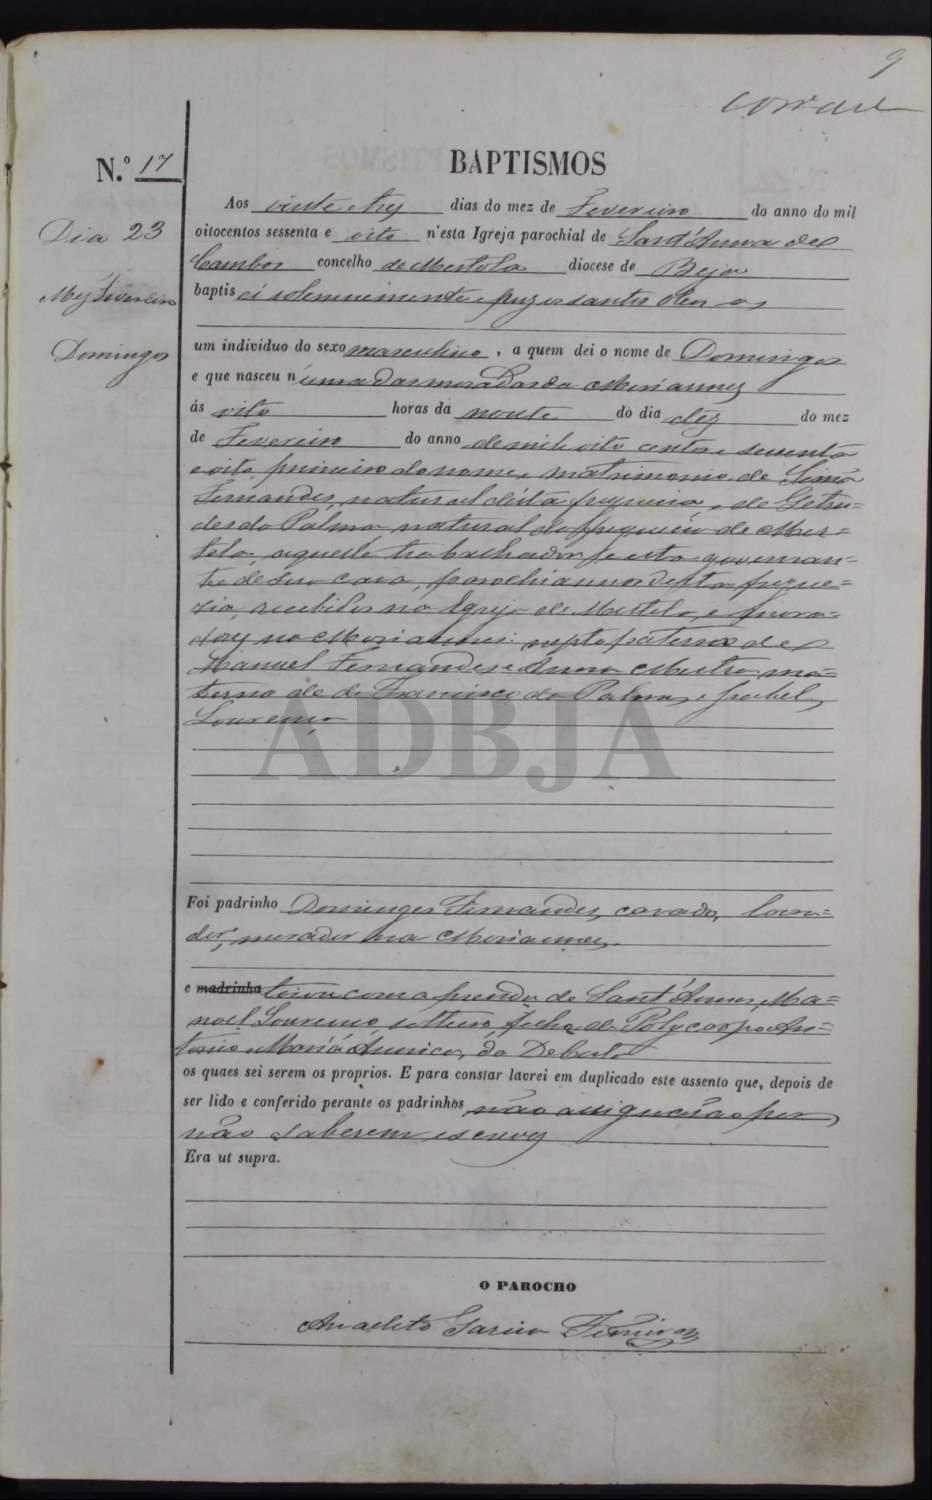 9
N.º 17
BAPTISMOS
Dia 23
Mez Fevereiro
Domingos
Aos vinte e trez dias do mez de Fevereiro do anno do mil
oitocentos sessenta e oito n'esta Igreja parochial de Sant'Anna de
Cambas concelho de Mertola diocese de Beja
baptisei solemnemente e puz os santos oleos a
um individuo do sexo masculino, a quem dei o nome de Domingos
e que nasceu n'uma das moradas da
ás oito horas da noute do dia dez do mez
de Fevereiro do anno de mil oito centos e sessenta
e oito primeiro do nome, e matrimonio de Simão
Fernandes, natural d'esta freguezia, e de Getru-
des da Palma, natural da freguezia de Mer-
tola, aquelle trabalhador e esta governan-
te de sua casa, parochianos d'esta fregue-
zia, recebidos na Igreja de Mertola, e mora-
dores na : nepto paterno de
Manuel Fernandes e Anna Mestra, ma-
terno de de Francisco da Palma, e Izabel
Lourenço
ADBJA
Foi padrinho Domingos Fernandes, cazado, lavra-
dor, morador na
e madrinha tocou com a prenda de Sant'Anna, Ma-
noel Lourenço, solteiro, filho de Polycarpo An-
tonio e Maria da
os quaes sei serem os proprios. E para constar lavrei em duplicado este assento que, depois de
ser lido e conferido perante os padrinhos não assignarão por
não saberem escrever
Era ut supra.
O PAROCHO
Anacleto Garcia